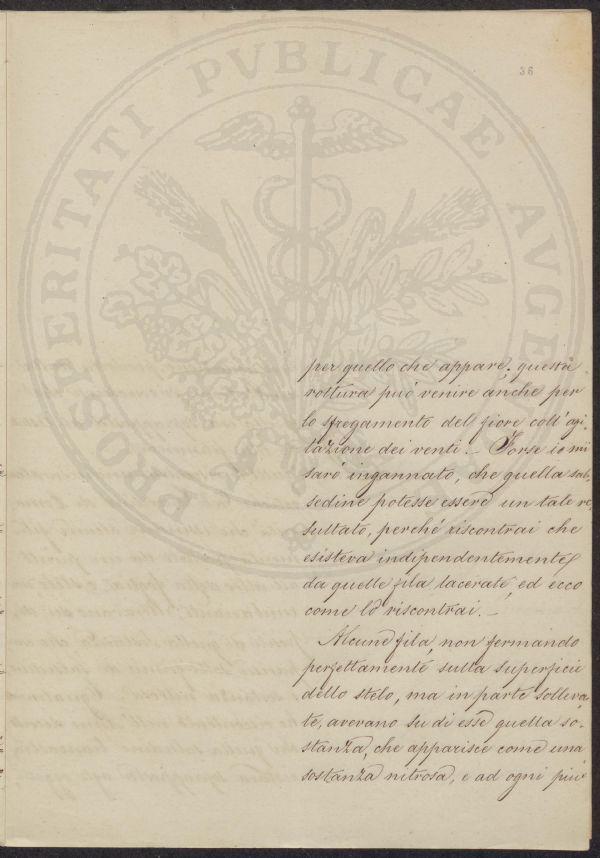 36
PROSPERITATI PVBLICAE AVGE
per quello che appare. questa
rottura può venire anche per
lo sfregamento del fiore coll'agi-
tazione dei venti. _ Forse io mi
sarò ingannato, che quella sal-
sedine potesse essere un tale re-
sultato, perché riscontrai che
esisteva indipendentemente
da quelle fila lacerate, ed ecco
come lo riscontrai. _
Alcune fila, non fermando
perfettamente sulla superficie
dello stelo, ma in parte solleva-
te, avevano su di esse quella so-
stanza, che apparisce come una
sostanza nitrosa, e ad ogni più